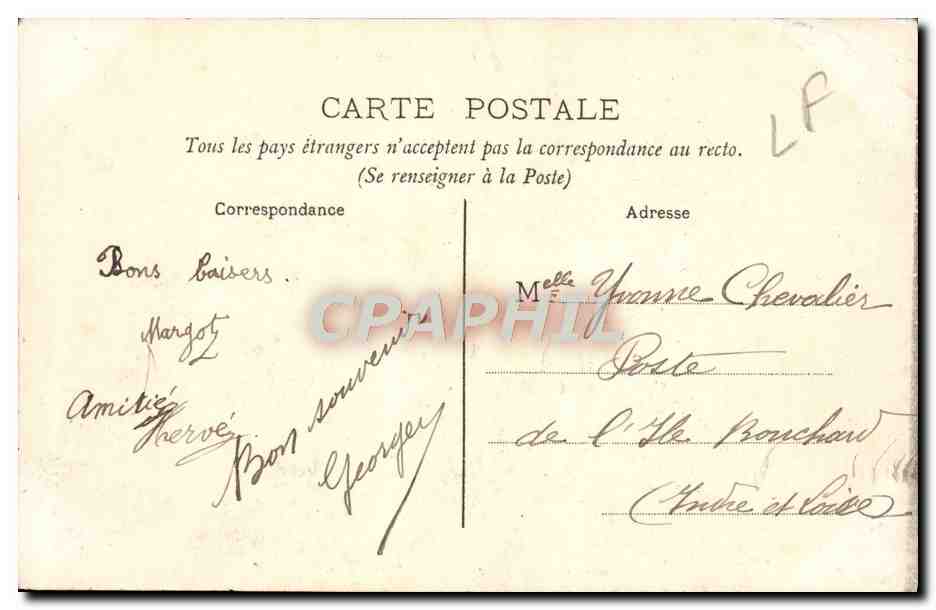 LF
CARTE POSTALE
Tous les pays étrangers n'acceptent pas la correspondance au recto.
(Se renseigner à la Poste)
Correspondance
Bons baisers.
Margot
Amitiés
Hervé
Bon souvenir
Georges
Adresse
Melle Yvonne Chevalier
Poste
de l'Ile Bouchard
(Indre et Loire)
CPAPHIL